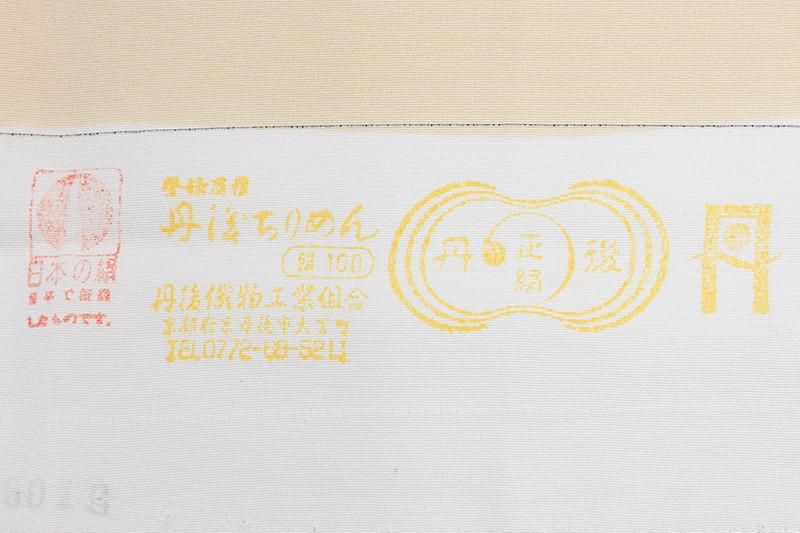 日本の絹
日本で製織
したものです。
登録商標
丹後ちりめん
絹100
丹後織物工業組合
京都府京丹後市大宮町
TEL0772-68-5211
丹 正絹 後
丹